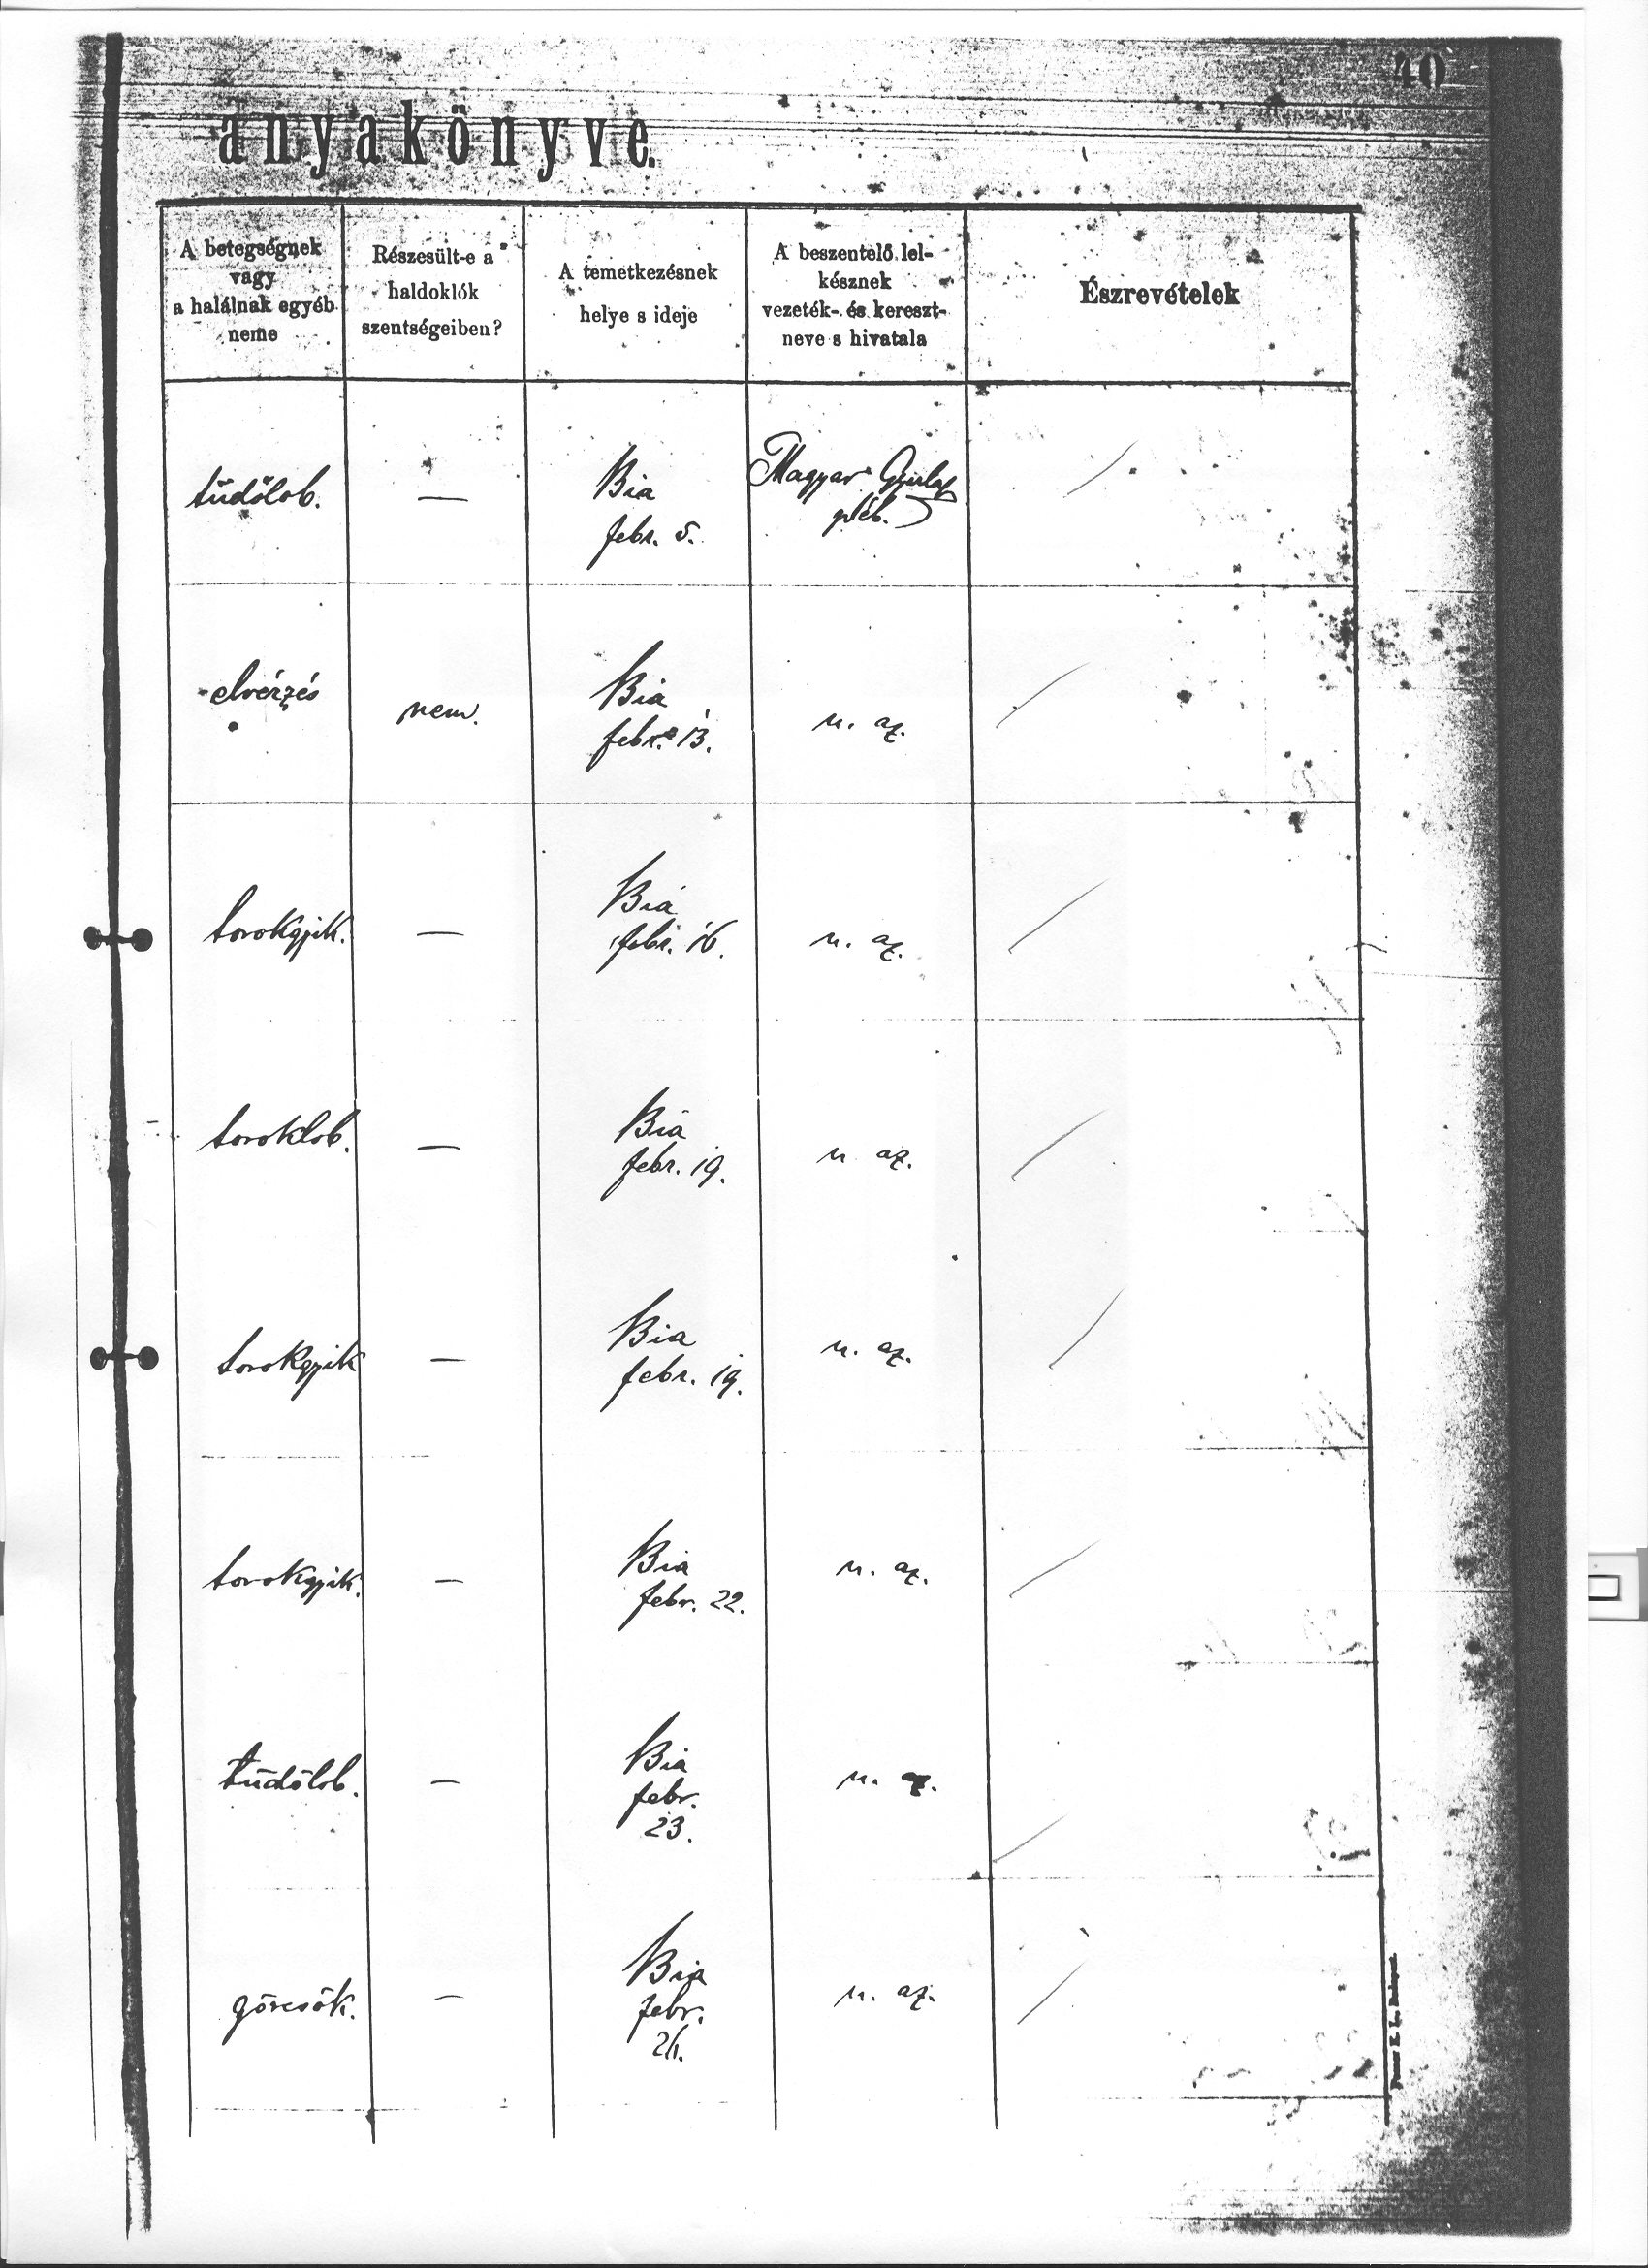 40
anyakönyve.
A betegségnek
vagy
a halálnak egyéb
neme
Részesült-e a
haldoklók
szentségeiben?
A temetkezésnek
helye s ideje
A beszentelő lel-
késznek
vezeték- és kereszt-
neve s hivatala
Észrevételek
tüdőlob.
—
Bia
febr. 5.
Magyar Gyula
pléb.
elvérzés
nem.
Bia
febr. 13.
u. az.
torokgyik.
—
Bia
febr. 16.
u. az.
toroklob.
—
Bia
febr. 19.
u. az.
torokgyik
—
Bia
febr. 19.
u. az.
torokgyik.
—
Bia
febr. 22.
u. az.
tüdőlob.
—
Bia
febr.
23.
u. az.
görcsök.
—
Bia
febr.
u. az.